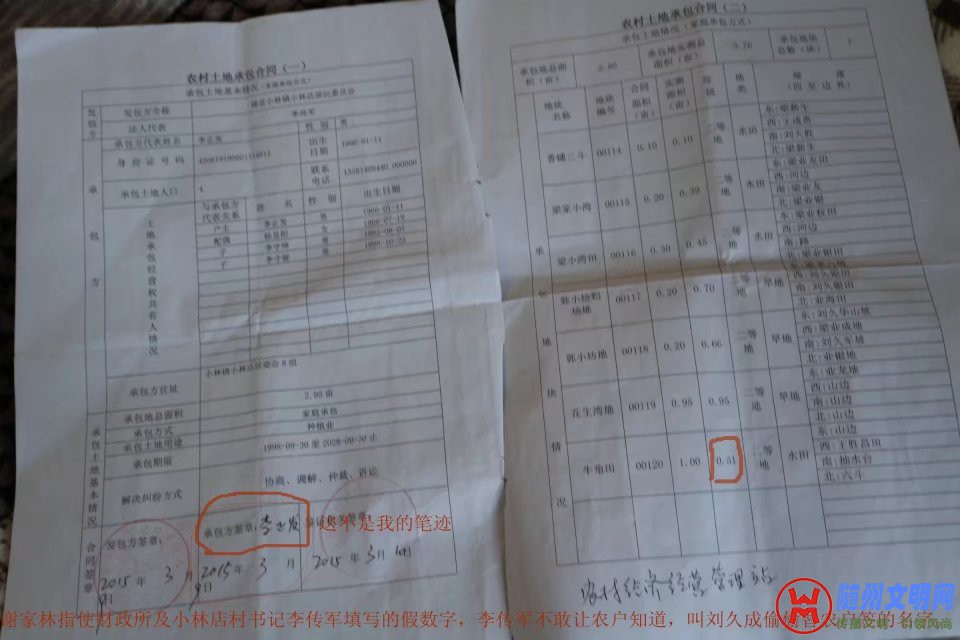 农村土地承包合同（一）
承包土地基本情况（家庭承包方式）
发包方
发包方全称
随县小林镇小林店居民委员会
法人代表
李传军
承包方代表姓名
李正发
性别
男
身份证号码
出生日期
1966-01-11
联系电话
承包土地人口
4
承包方
土地承包经营权共有人情况
与承包方代表关系
姓名
性别
出生日期
户主
李正发
男
1966-01-11
配偶
女
子
男
子
男
承包方住址
小林镇小林店居委会8组
承包地总面积
2.95亩
承包方式
家庭承包
承包土地用途
种植业
承包期限
1998-09-30 至 2028-09-30 止
解决纠纷方式
协商、调解、仲裁、诉讼
承包土地基本情况
合同签章
发包方签章：
承包方签章：李正发
这不是我的笔迹
2015 年 3 月
2015 年 3 月
2015 年 3 月
农村土地承包合同（二）
承包土地情况（家庭承包方式）
承包地总面积（亩）
2.95
承包地实测总面积（亩）
3.76
承包地块总数（块）
7
承包地块情况
地块名称
地块编号
合同面积（亩）
实测面积（亩）
等级
地类
座落（四至边界）
香铺三斗 00114 0.10 0.10 二等地 水田
梁家小湾 00115 0.20 0.29 二等地 水田
梁小湾田 00116 0.30 0.45 二等地 水田
00117 0.20 0.70 二等地 旱地
郭小坊地 00118 0.20 0.66 二等地 旱地
花生湾地 00119 0.95 0.95 二等地 旱地
牛角田 00120 1.00 0.51 二等地 水田
东:梁新生
西:王成贵
南:刘大胜
北:梁新生
东:梁业友田
西:河边
南:梁业友
北:梁业银
东:梁业权田
西:河边
南:路
北:梁业银田
西:刘久银田
南:刘久银田
北:业海田
东:刘久华山坡
西:梁业成地
南:刘久军坡
北:业银地
东:业龙地
西:山边
南:山边
北:山边
东:山边
西:王胜昌田
南:柚水台
北:六斗
农村经济经营管理站
随州文明网
传播文明 引领风尚
谢家林指使财政所及小林店村书记李传军填写的假数字，李传军不敢让农户知道，叫刘久成偷偷冒农户签的名字